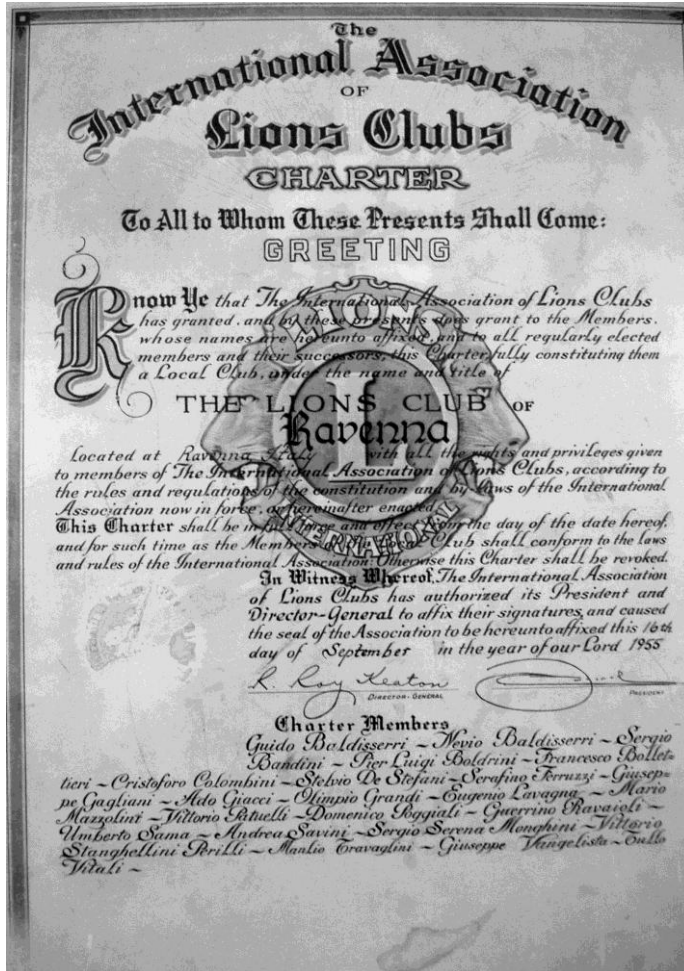 The
International Association
OF
Lions Clubs
CHARTER
To All to Whom These Presents Shall Come:
GREETING
Know Ye that The International Association of Lions Clubs
has granted, and by these presents does grant to the Members,
whose names are hereunto affixed, and to all regularly elected
members and their successors, this Charter, fully constituting them
a Local Club, under the name and title of
THE LIONS CLUB OF
Ravenna
Located at Ravenna, Italy with all the rights and privileges given
to members of The International Association of Lions Clubs, according to
the rules and regulations of the constitution and by-laws of the International
Association now in force, or hereinafter enacted.
This Charter shall be in full force and effect from the day of the date hereof,
and for such time as the Members of the Local Club shall conform to the laws
and rules of the International Association: Otherwise this Charter shall be revoked.
In Witness Whereof, The International Association
of Lions Clubs has authorized its President and
Director-General to affix their signatures, and caused
the seal of the Association to be hereunto affixed this 16th
day of September in the year of our Lord 1955
R. Roy Keaton
DIRECTOR-GENERAL PRESIDENT
Charter Members
Guido Baldisserri ~ Nevio Baldisserri ~ Sergio
Bandini ~ Pier Luigi Boldrini ~ Francesco Bollet=
tieri ~ Cristoforo Colombini ~ Stelvio De Stefani ~ Serafino Ferruzzi ~ Giusep=
pe Gagliani ~ Aldo Giacci ~ Olimpio Grandi ~ Eugenio Lavagna ~ Mario
Mazzolini ~ Vittorio Patuelli ~ Domenico Poggiali ~ Guerrino Ravaioli ~
Umberto Sama ~ Andrea Savini ~ Sergio Serena Monghini ~ Vittorio
Stanghellini Perilli ~ Manlio Travaglini ~ Giuseppe Vangelista ~ Tullo
Vitali ~
LIONS
L
INTERNATIONAL